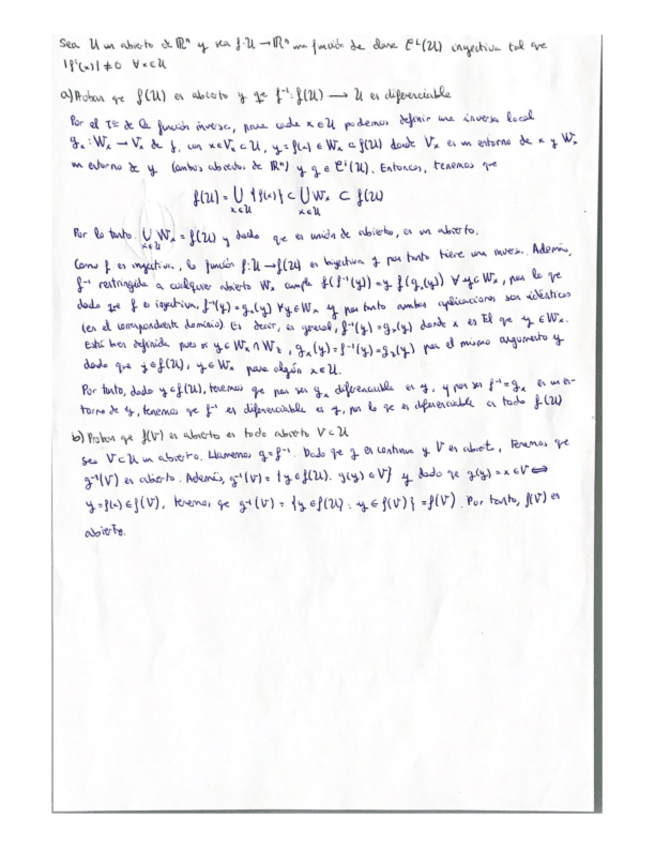 Sea U un abierto de ℝⁿ y sea f: U → ℝⁿ una función de clase C¹(U) inyectiva tal que
|f'(x)| ≠ 0 ∀x∈U
a) Probar que f(U) es abierto y que f⁻¹: f(U) → U es diferenciable
Por el Tª de la función inversa, para cada x∈U podemos definir una inversa local
gₓ: Wₓ → Vₓ de f, con x∈Vₓ⊂U, y=f(x)∈Wₓ⊂f(U) donde Vₓ es un entorno de x y Wₓ
un entorno de y (ambos abiertos de ℝⁿ) y g∈C¹(U). Entonces, tenemos que
f(U) = ⋃ {f(x)} ⊂ ⋃ Wₓ ⊂ f(U)
x∈U x∈U
Por lo tanto ⋃ Wₓ = f(U) y dado que es unión de abierto, es un abierto.
x∈U
Como f es inyectiva, la función f: U→f(U) es biyectiva y por tanto tiene una inversa. Además,
f⁻¹ restringida a cualquier abierto Wₓ cumple f(f⁻¹(y)) = y = f(gₓ(y)) ∀y∈Wₓ, por lo que
dado que f es inyectiva, f⁻¹(y) = gₓ(y) ∀y∈Wₓ y por tanto ambas aplicaciones son idénticas
(en el correspondiente dominio). Es decir, en general, f⁻¹(y) = gₓ(y) donde x es tal que y∈Wₓ.
Está bien definida pues si y∈Wₓ∩W_z, gₓ(y) = f⁻¹(y) = g_z(y) por el mismo argumento y
dado que y∈f(U), y∈Wₓ para algún x∈U.
Por tanto, dado y∈f(U), tenemos que por ser gₓ diferenciable en y, y por ser f⁻¹=gₓ en un en-
torno de y, tenemos que f⁻¹ es diferenciable en y, por lo que es diferenciable en todo f(U)
b) Probar que f(V) es abierto en todo abierto V⊂U
Sea V⊂U un abierto. Llamemos g=f⁻¹. Dado que g es continua y V es abierto, tenemos que
g⁻¹(V) es abierto. Además, g⁻¹(V) = {y∈f(U): g(y)∈V} y dado que g(y)=x∈V ⟺
y=f(x)∈f(V), tenemos que g⁻¹(V) = {y∈f(U): y∈f(V)} = f(V). Por tanto, f(V) es
abierto.